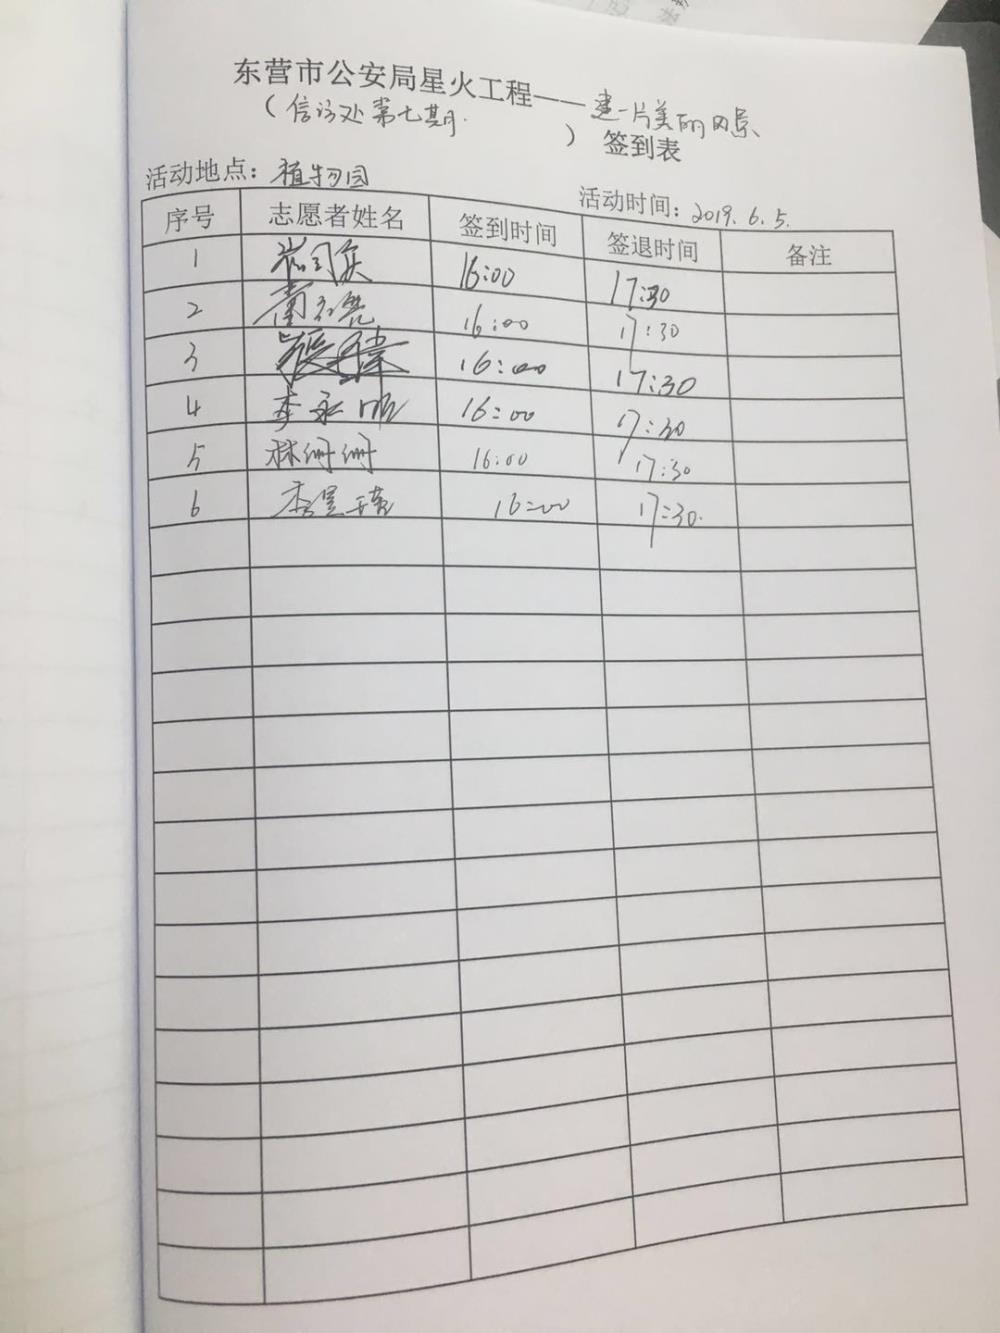 东营市公安局星火工程——建一片美的风景
（信访处第七期 ）签到表
活动地点：植物园 活动时间：2019.6.5.
序号 志愿者姓名 签到时间 签退时间 备注
1 16:00 17:30
2 16:00 17:30
3 16:00 17:30
4 李永明 16:00 17:30
5 林珊珊 16:00 17:30
6 16:00 17:30.